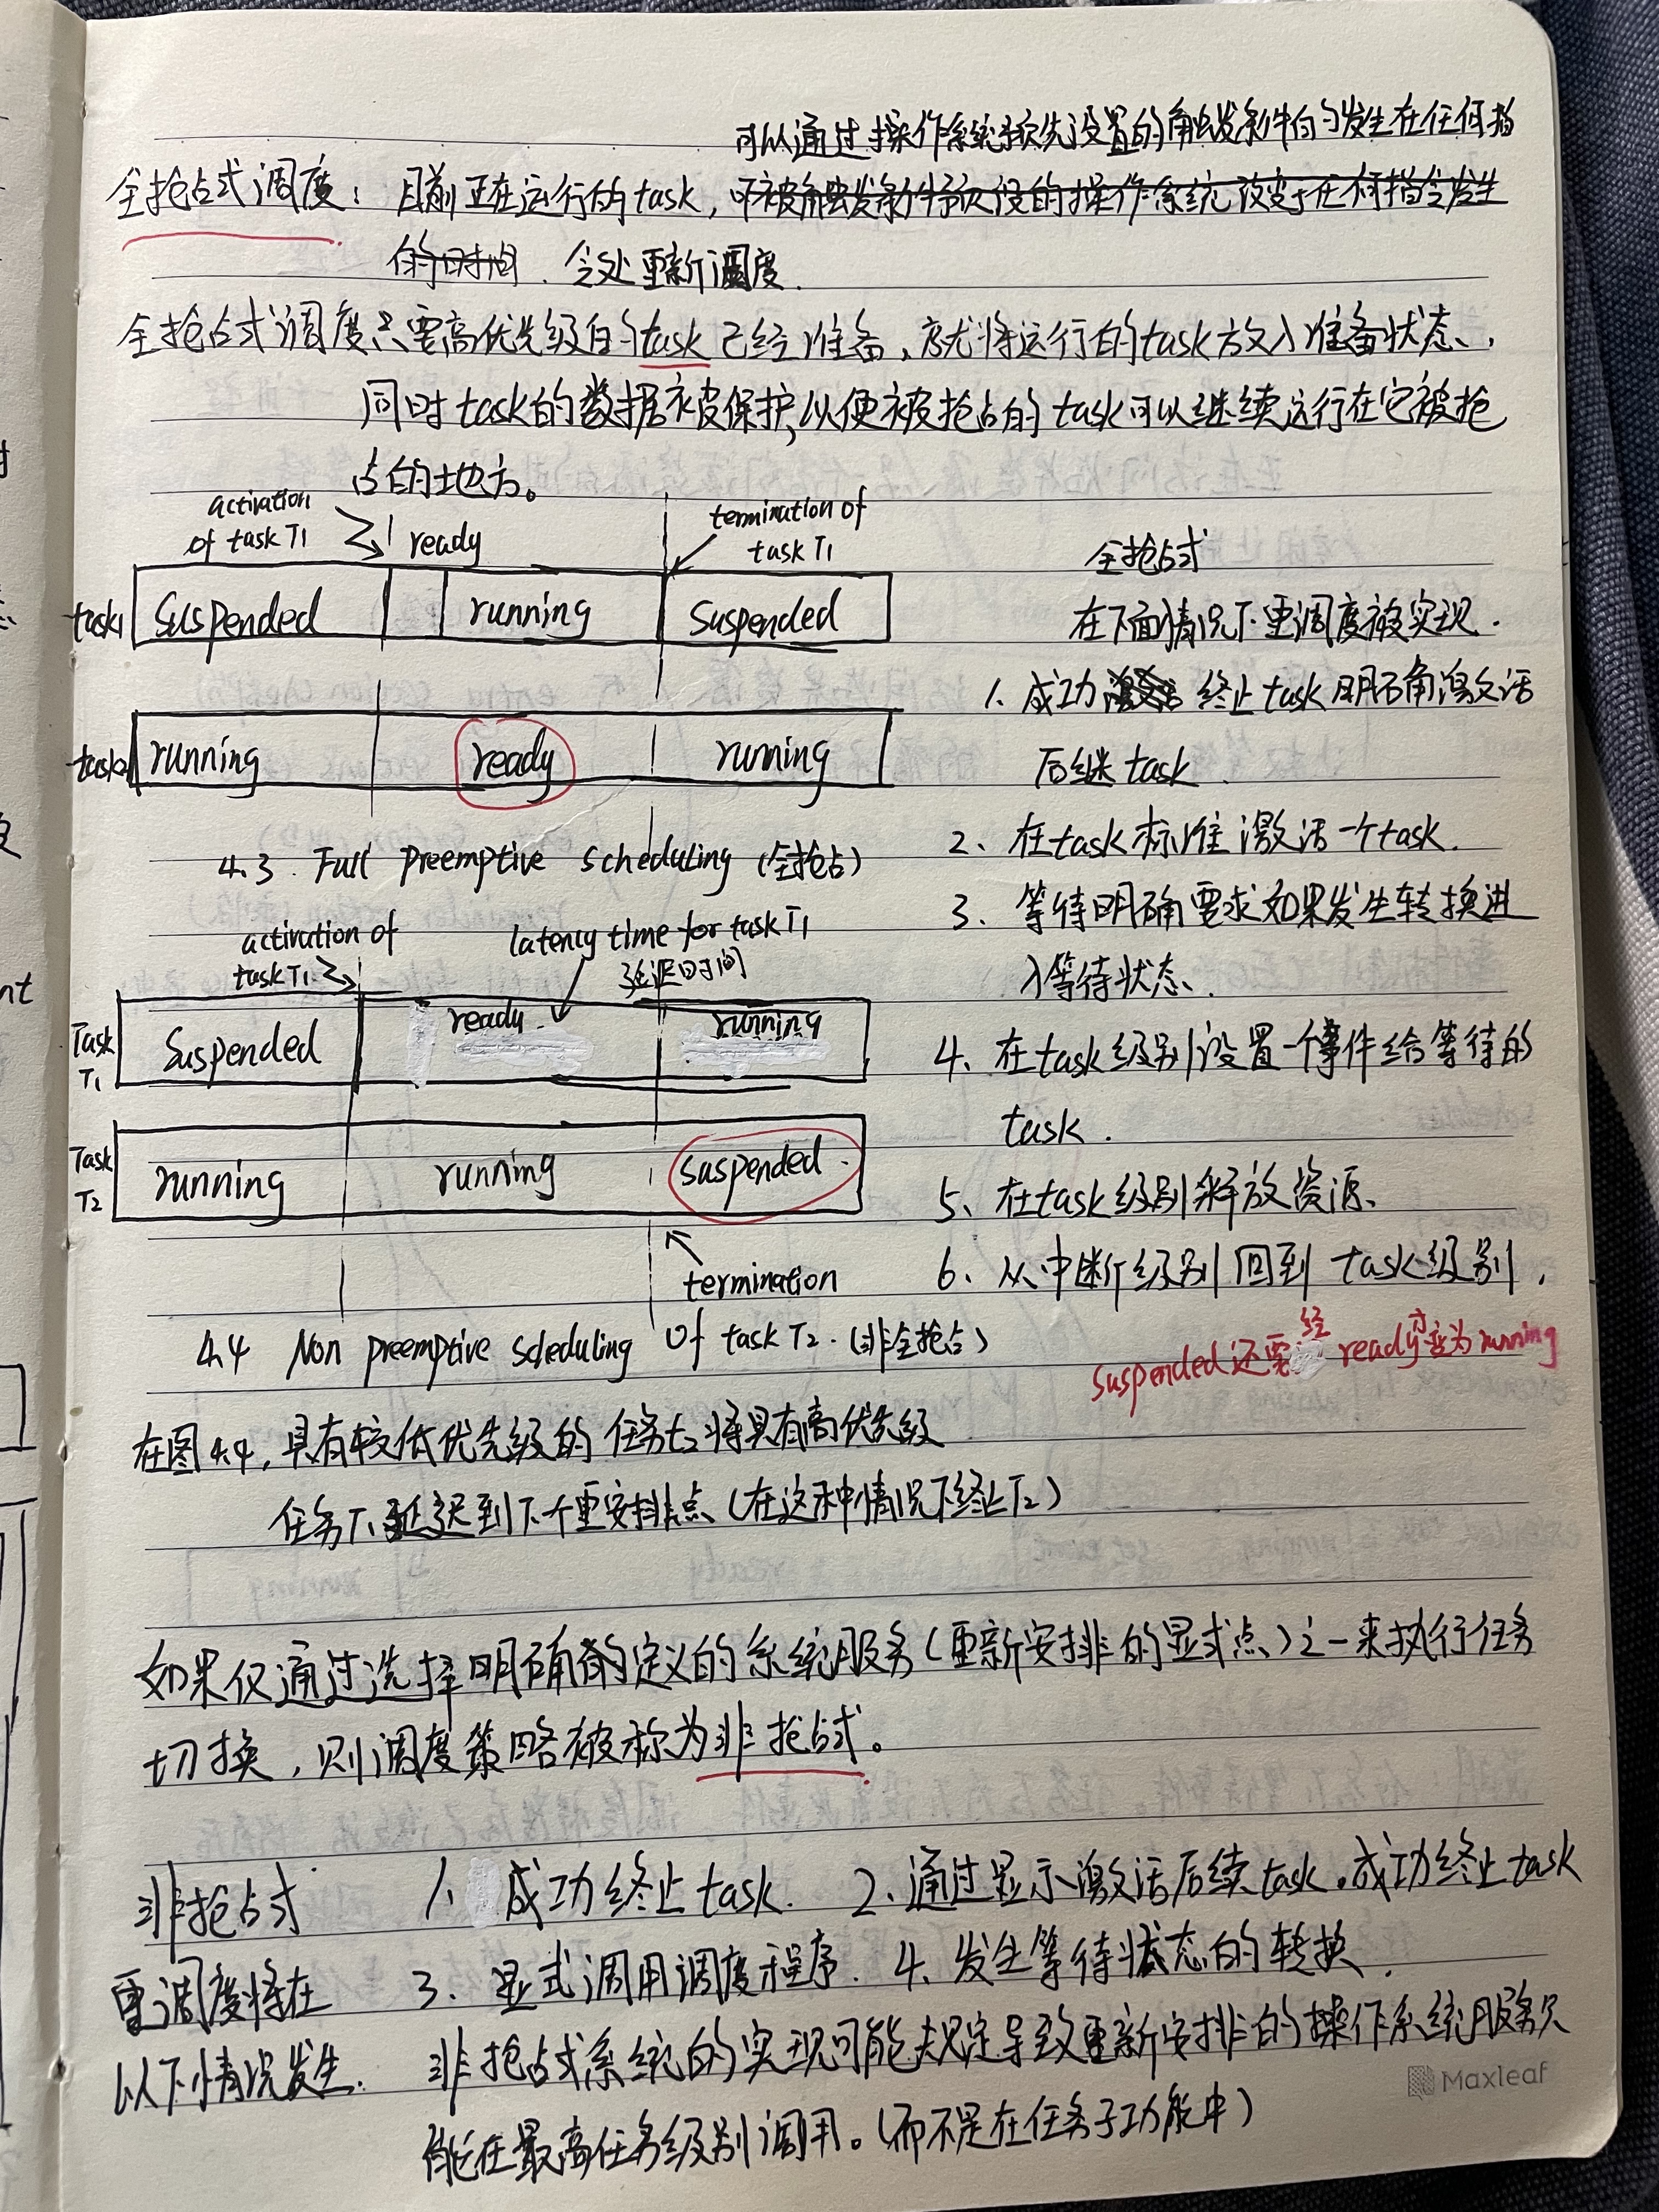 可以通过操作系统预先设置的触发条件的发生在任何指
全抢占式调度：目前正在运行的task，
令处重新调度.
全抢占式调度只要高优先级的task已经准备，就将运行的task放入准备状态，
同时task的数据被保护，以便被抢占的task可以继续运行在它被抢
占的地方。
activation of task T1
ready
termination of task T1
task1 Suspended running Suspended
task2 running ready running
4.3 Full preemptive scheduling (全抢占)
activation of task T1
latency time for task T1
延迟时间
Task T1 Suspended ready running
Task T2 running running suspended.
termination
4.4 Non preemptive scheduling of task T2. (非全抢占)
全抢占式
在下面情况下重调度被实现.
1. 成功终止task明确激活
后继task.
2、在task标准激活一个task.
3、等待明确要求如果发生转换进
入等待状态.
4、在task级别设置一个事件给等待的
task.
5、在task级别释放资源.
6、从中断级别回到task级别.
suspended还需经ready才变为running
在图4.4，具有较低优先级的任务T2将具有高优先级
任务T1延迟到下个重安排点（在这种情况下终止T2）
如果仅通过选择明确的定义的系统服务（重新安排的显式点）之一来执行任务
切换，则调度策略被称为非抢占式。
非抢占式
重调度将在
以下情况发生.
1、成功终止task. 2、通过显示激活后续task。成功终止task
3、显式调用调度程序. 4、发生等待状态的转换.
非抢占式系统的实现可能规定导致重新安排的操作系统服务只
能在最高任务级别调用。（而不是在任务子功能中）
Maxleaf